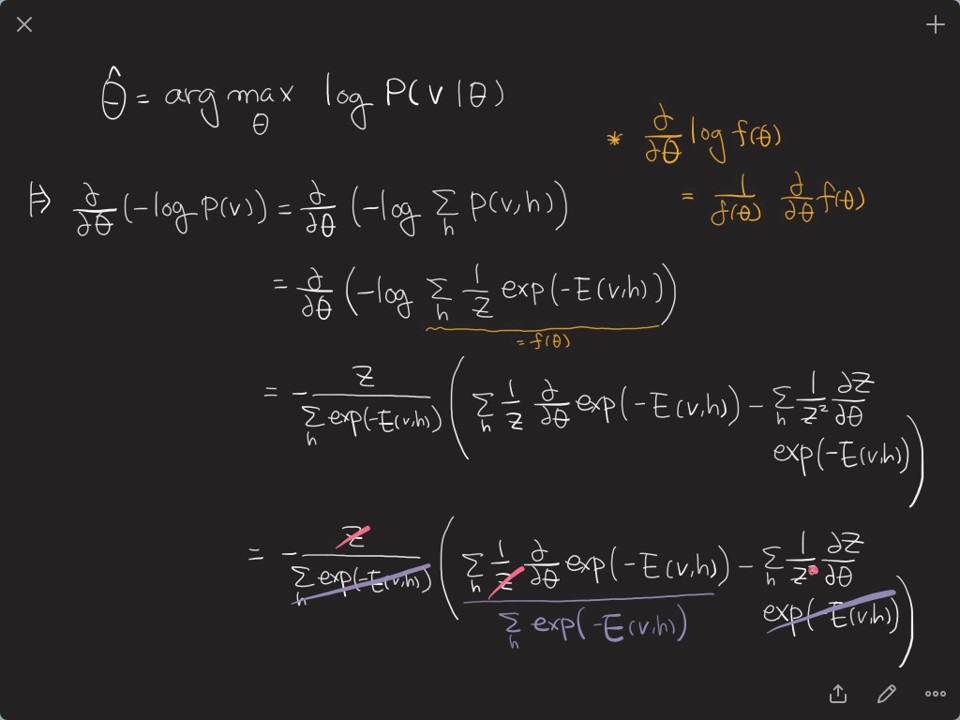 θ̂ = arg max_θ log P(v|θ)
* ∂/∂θ log f(θ)
= 1/f(θ) ∂/∂θ f(θ)
⊨ ∂/∂θ (-log P(v)) = ∂/∂θ (-log Σ_h P(v,h))
= ∂/∂θ (-log Σ_h 1/Z exp(-E(v,h)))
= f(θ)
= - Z / Σ_h exp(-E(v,h)) ( Σ_h 1/Z ∂/∂θ exp(-E(v,h)) - Σ_h 1/Z² ∂Z/∂θ
exp(-E(v,h)) )
= - Z / Σ_h exp(-E(v,h)) ( Σ_h 1/Z ∂/∂θ exp(-E(v,h)) - Σ_h 1/Z² ∂Z/∂θ
Σ_h exp(-E(v,h))
exp(-E(v,h)) )